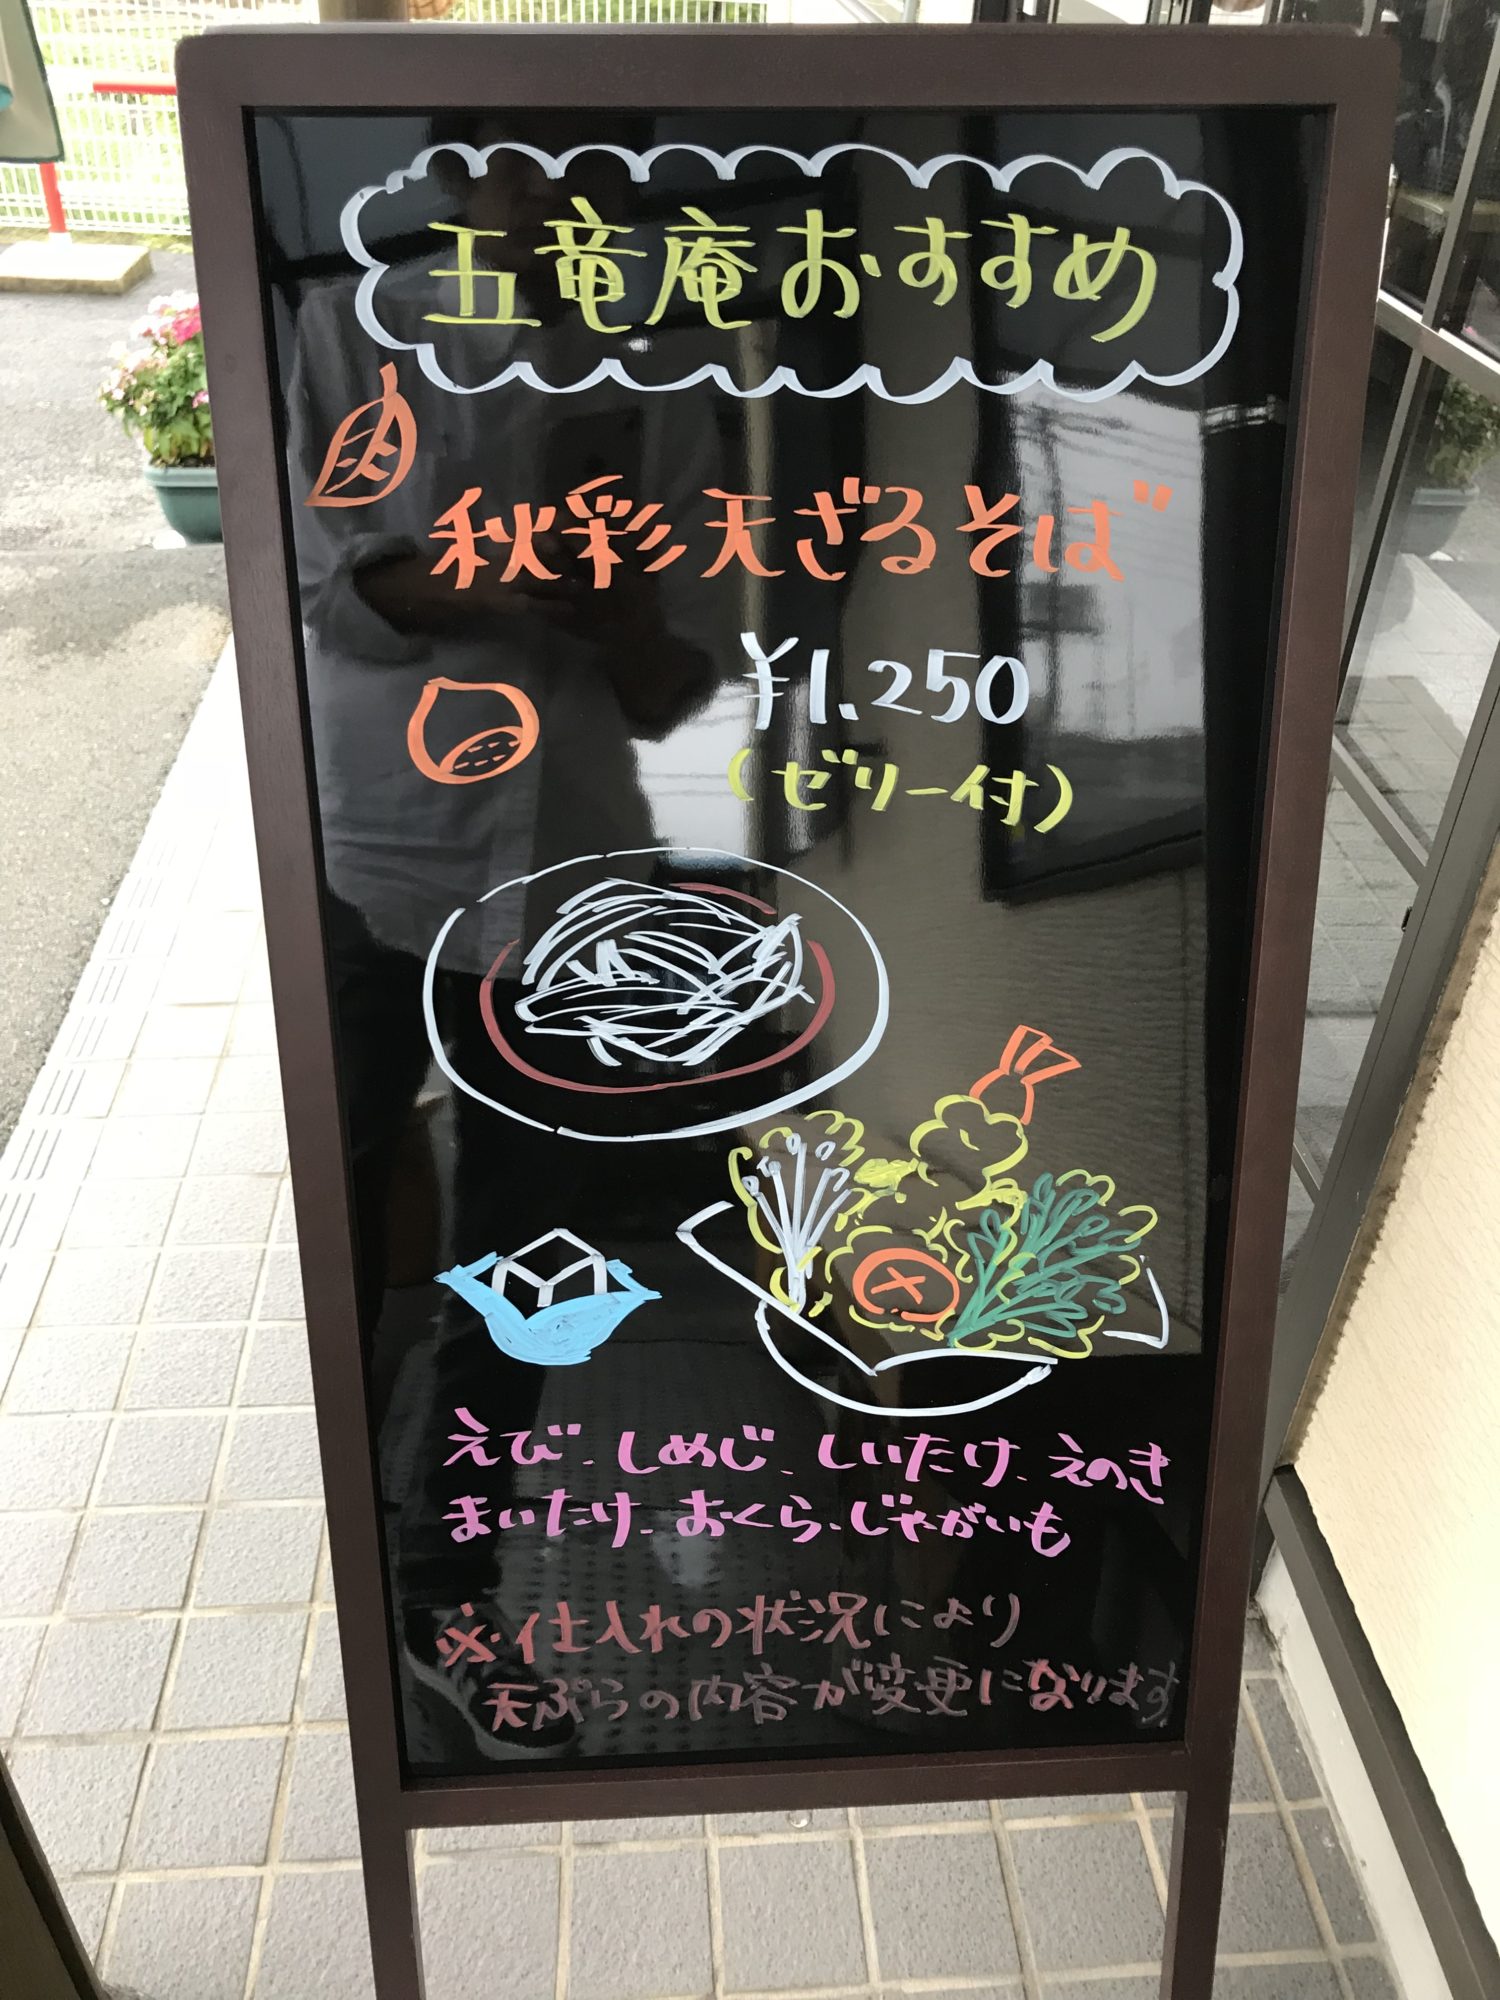 五竜庵おすすめ
秋彩天ざるそば
¥1.250
(ゼリー付)
えび、しめじ、しいたけ、えのき
まいたけ、おくら、じゃがいも
※仕入れの状況により
天ぷらの内容が変更になります